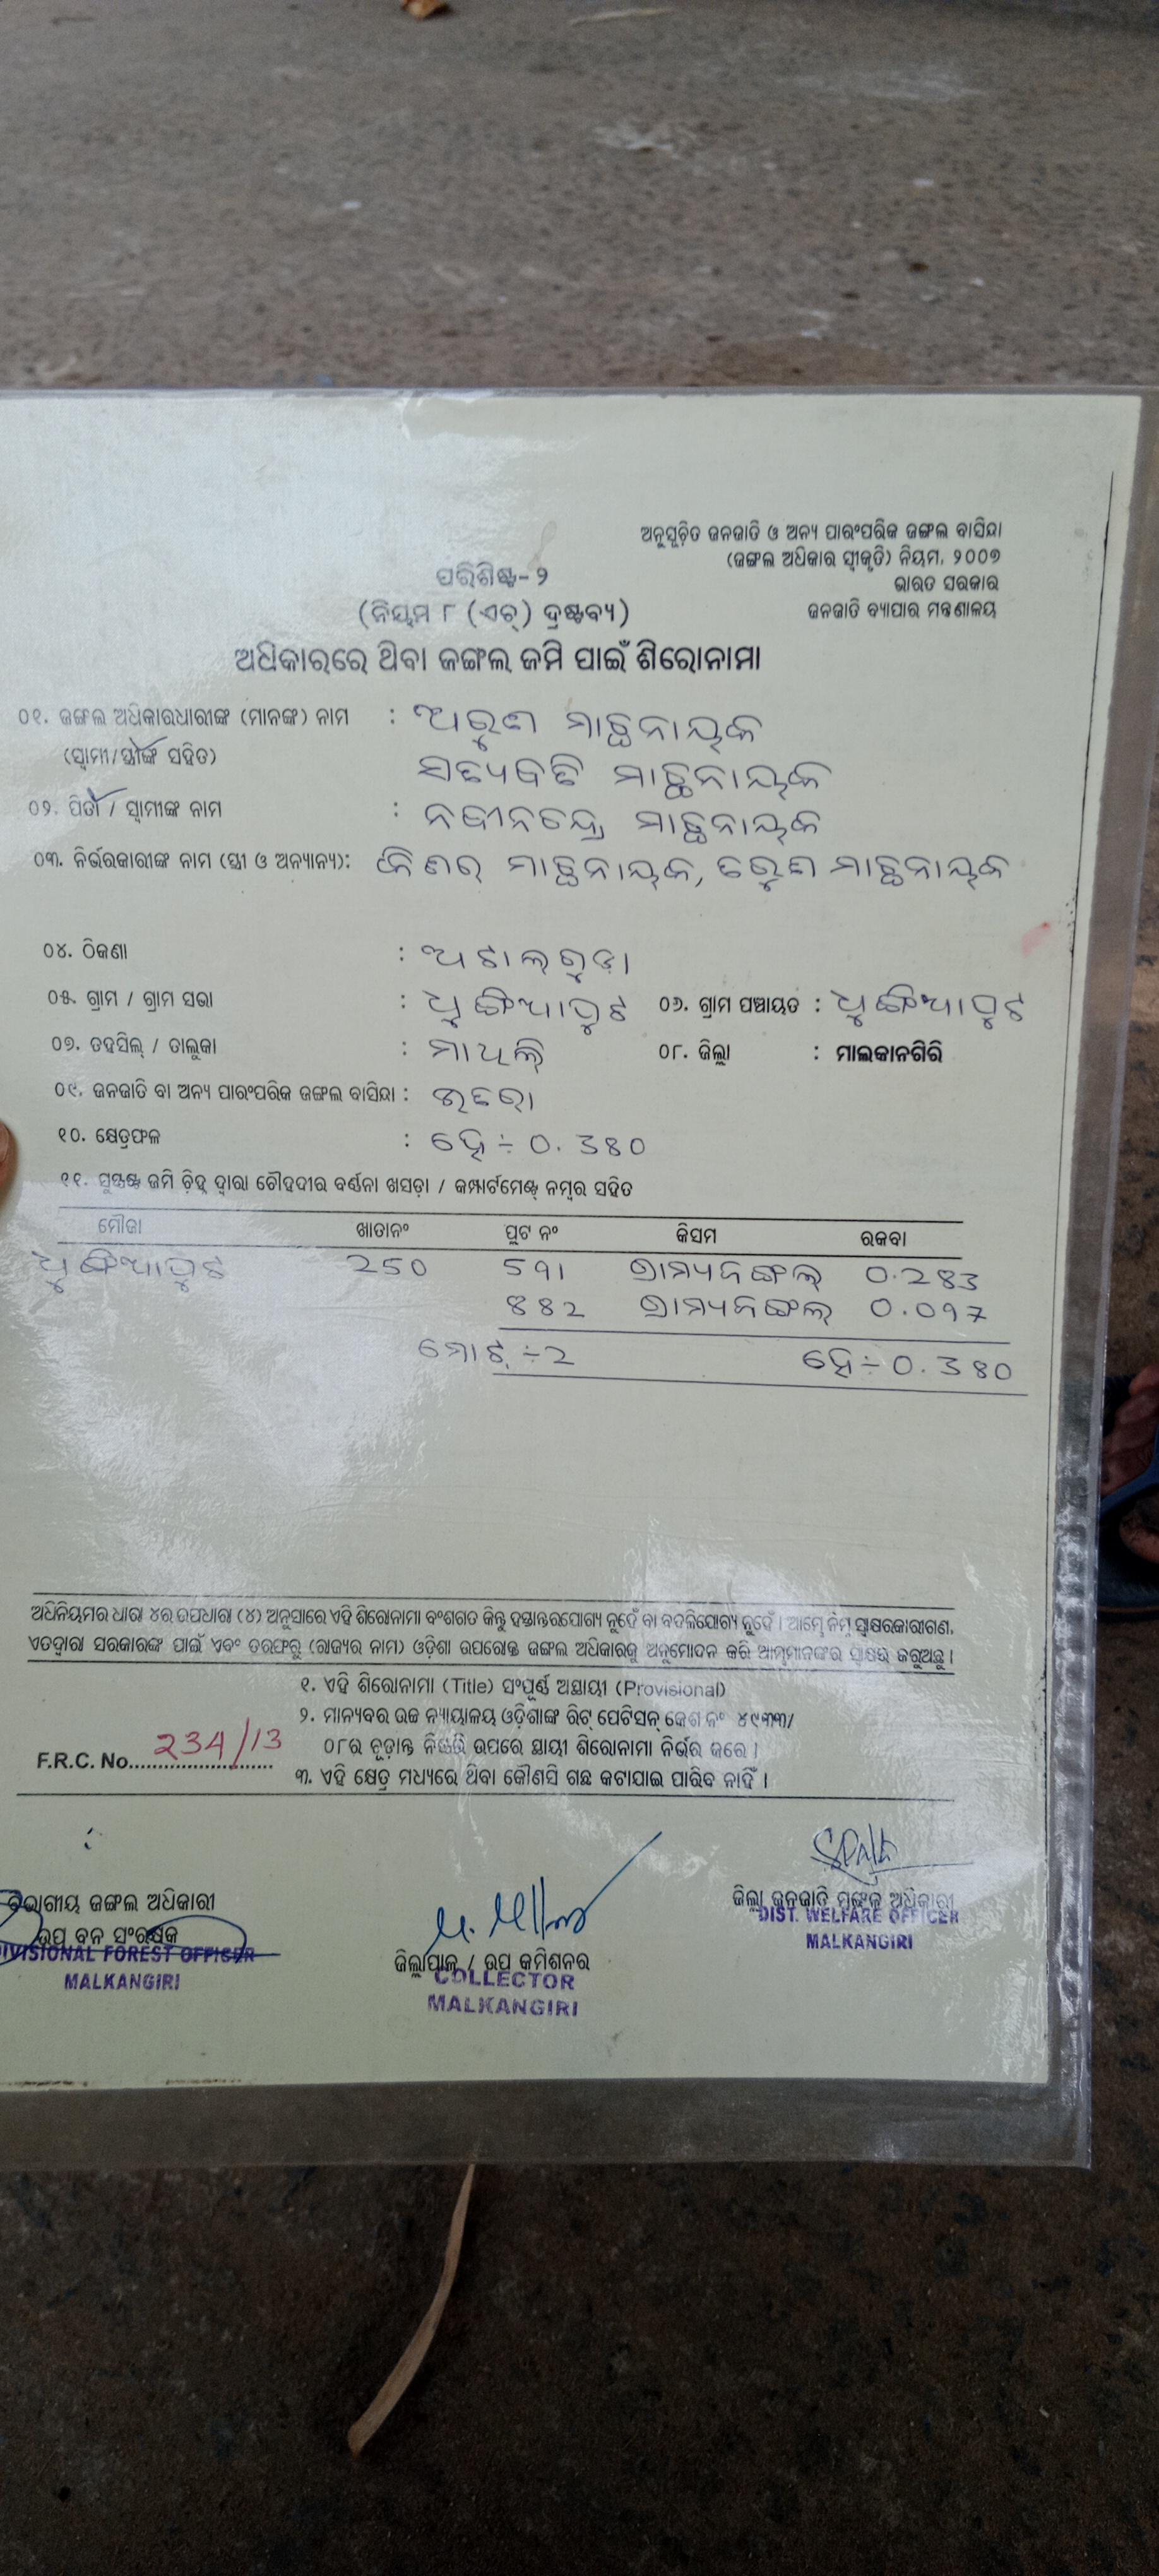 ଅନୁସୂଚିତ ଜନଜାତି ଓ ଅନ୍ୟ ପାରଂପରିକ ଜଙ୍ଗଲ ବାସିନ୍ଦା
(ଜଙ୍ଗଲ ଅଧିକାର ସ୍ୱୀକୃତି) ନିୟମ, ୨୦୦୭
ଭାରତ ସରକାର
ଜନଜାତି ବ୍ୟାପାର ମନ୍ତ୍ରଣାଳୟ
ପରିଶିଷ୍ଟ-୨
(ନିୟମ ୮ (ଏଚ୍) ଦ୍ରଷ୍ଟବ୍ୟ)
ଅଧିକାରରେ ଥିବା ଜଙ୍ଗଲ ଜମି ପାଇଁ ଶିରୋନାମା
୦୧. ଜଙ୍ଗଲ ଅଧିକାରଧାରୀଙ୍କ (ମାନଙ୍କ) ନାମ : ଅରୁଣ ମାଛନାୟକ
(ସ୍ୱାମୀ/ସ୍ତ୍ରୀଙ୍କ ସହିତ) ସତ୍ୟବତି ମାଛନାୟକ
୦୨. ପିତା / ସ୍ୱାମୀଙ୍କ ନାମ : ନବୀନଚନ୍ଦ୍ର ମାଛନାୟକ
୦୩. ନିର୍ଭରକାରୀଙ୍କ ନାମ (ସ୍ତ୍ରୀ ଓ ଅନ୍ୟାନ୍ୟ): ମାଛନାୟକ, ତରୁଣ ମାଛନାୟକ
୦୪. ଠିକଣା : ଅଟାଲଗୁଡ଼ା
୦୫. ଗ୍ରାମ / ଗ୍ରାମ ସଭା : ଧୁଙ୍ଗିଆପୁଟ ୦୬. ଗ୍ରାମ ପଞ୍ଚାୟତ : ଧୁଙ୍ଗିଆପୁଟ
୦୭. ତହସିଲ୍ / ତାଲୁକା : ମାଥିଲି ୦୮. ଜିଲ୍ଲା : ମାଲକାନଗିରି
୦୯. ଜନଜାତି ବା ଅନ୍ୟ ପାରଂପରିକ ଜଙ୍ଗଲ ବାସିନ୍ଦା :
୧୦. କ୍ଷେତ୍ରଫଳ : ହେ ÷ 0.380
୧୧. ସୁସ୍ପଷ୍ଟ ଜମି ଚିହ୍ନ ଦ୍ୱାରା ଚୌହଦୀର ବର୍ଣ୍ଣନା ଖସଡ଼ା / କମ୍ପାର୍ଟମେଣ୍ଟ୍ ନମ୍ବର ସହିତ
ମୌଜା ଖାତାନଂ ପ୍ଲଟ ନଂ କିସମ ରକବା
ଧୁଙ୍ଗିଆପୁଟ 250 591 ଗ୍ରାମ୍ୟଜଙ୍ଗଲ୍ 0.283
882 ଗ୍ରାମ୍ୟଜଙ୍ଗଲ୍ 0.097
ମୋଟ୍ ÷ 2 ହେ ÷ 0.380
ଅଧିନିୟମର ଧାରା ୪ର ଉପଧାରା (୪) ଅନୁସାରେ ଏହି ଶିରୋନାମା ବଂଶଗତ କିନ୍ତୁ ହସ୍ତାନ୍ତରଯୋଗ୍ୟ ନୁହେଁ ବା ବଦଳିଯୋଗ୍ୟ ନୁହେଁ । ଆମ୍ଭେ ନିମ୍ନ ସ୍ୱାକ୍ଷରକାରୀଗଣ,
ଏତଦ୍ୱାରା ସରକାରଙ୍କ ପାଇଁ ଏବଂ ତରଫରୁ (ରାଜ୍ୟର ନାମ) ଓଡ଼ିଶା ଉପରୋକ୍ତ ଜଙ୍ଗଲ ଅଧିକାରକୁ ଅନୁମୋଦନ କରି ଆମ୍ଭମାନଙ୍କର ସ୍ୱାକ୍ଷର କରୁଅଛୁ ।
୧. ଏହି ଶିରୋନାମା (Title) ସଂପୂର୍ଣ୍ଣ ଅସ୍ଥାୟୀ (Provisional)
୨. ମାନ୍ୟବର ଉଚ୍ଚ ନ୍ୟାୟାଳୟ ଓଡ଼ିଶାଙ୍କ ରିଟ୍ ପେଟିସନ୍ କେଶ ନଂ ୪୯୩୩/
୦୮ର ଚୂଡ଼ାନ୍ତ ନିଷ୍ପତ୍ତି ଉପରେ ସ୍ଥାୟୀ ଶିରୋନାମା ନିର୍ଭର କରେ ।
F.R.C. No. 234/13
୩. ଏହି କ୍ଷେତ୍ର ମଧ୍ୟରେ ଥିବା କୌଣସି ଗଛ କଟାଯାଇ ପାରିବ ନାହିଁ ।
ବିଭାଗୀୟ ଜଙ୍ଗଲ ଅଧିକାରୀ
ଉପ ବନ ସଂରକ୍ଷକ
DIVISIONAL FOREST OFFICER
MALKANGIRI
ଜିଲ୍ଲାପାଳ / ଉପ କମିଶନର
COLLECTOR
MALKANGIRI
ଜିଲ୍ଲା ଜନଜାତି ମଙ୍ଗଳ ଅଧିକାରୀ
DIST. WELFARE OFFICER
MALKANGIRI